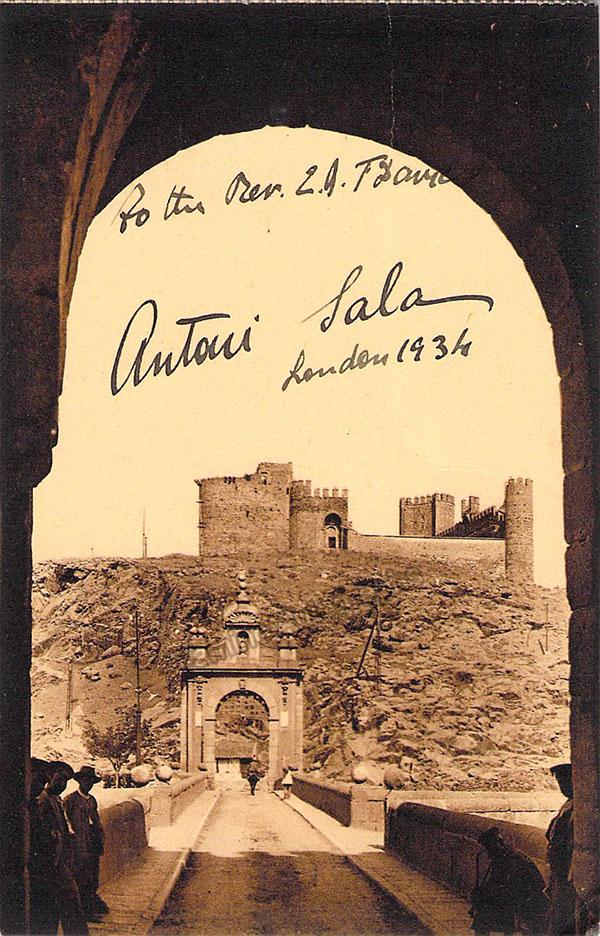 to the Rev. L.A.
Antoni Sala
London 1934